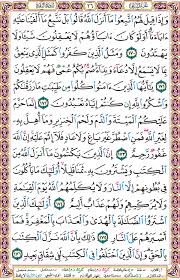 وَإِذَا قِيلَ لَهُمُ اتَّبِعُوا مَا أَنزَلَ اللَّهُ قَالُوا بَلْ نَتَّبِعُ مَا أَلْفَيْنَا
عَلَيْهِ ءَابَاءَنَا أَوَلَوْ كَانَ ءَابَاؤُهُمْ لَا يَعْقِلُونَ شَيْئًا وَلَا
يَهْتَدُونَ ١٧٠ وَمَثَلُ الَّذِينَ كَفَرُوا كَمَثَلِ الَّذِي يَنْعِقُ
بِمَا لَا يَسْمَعُ إِلَّا دُعَاءً وَنِدَاءً صُمٌّ بُكْمٌ عُمْيٌ فَهُمْ لَا يَعْقِلُونَ
١٧١ يَٰأَيُّهَا الَّذِينَ ءَامَنُوا كُلُوا مِن طَيِّبَٰتِ مَا رَزَقْنَٰكُمْ
وَاشْكُرُوا لِلَّهِ إِن كُنتُمْ إِيَّاهُ تَعْبُدُونَ ١٧٢ إِنَّمَا حَرَّمَ
عَلَيْكُمُ الْمَيْتَةَ وَالدَّمَ وَلَحْمَ الْخِنزِيرِ وَمَا أُهِلَّ بِهِ
لِغَيْرِ اللَّهِ فَمَنِ اضْطُرَّ غَيْرَ بَاغٍ وَلَا عَادٍ فَلَا إِثْمَ عَلَيْهِ إِنَّ اللَّهَ
غَفُورٌ رَّحِيمٌ ١٧٣ إِنَّ الَّذِينَ يَكْتُمُونَ مَا أَنزَلَ اللَّهُ مِنَ
الْكِتَٰبِ وَيَشْتَرُونَ بِهِ ثَمَنًا قَلِيلًا أُولَٰئِكَ مَا يَأْكُلُونَ
فِي بُطُونِهِمْ إِلَّا النَّارَ وَلَا يُكَلِّمُهُمُ اللَّهُ يَوْمَ الْقِيَٰمَةِ
وَلَا يُزَكِّيهِمْ وَلَهُمْ عَذَابٌ أَلِيمٌ ١٧٤ أُولَٰئِكَ الَّذِينَ
اشْتَرَوُا الضَّلَٰلَةَ بِالْهُدَىٰ وَالْعَذَابَ بِالْمَغْفِرَةِ فَمَا
أَصْبَرَهُمْ عَلَى النَّارِ ١٧٥ ذَٰلِكَ بِأَنَّ اللَّهَ نَزَّلَ الْكِتَٰبَ
بِالْحَقِّ وَإِنَّ الَّذِينَ اخْتَلَفُوا فِي الْكِتَٰبِ لَفِي شِقَاقٍ بَعِيدٍ ١٧٦